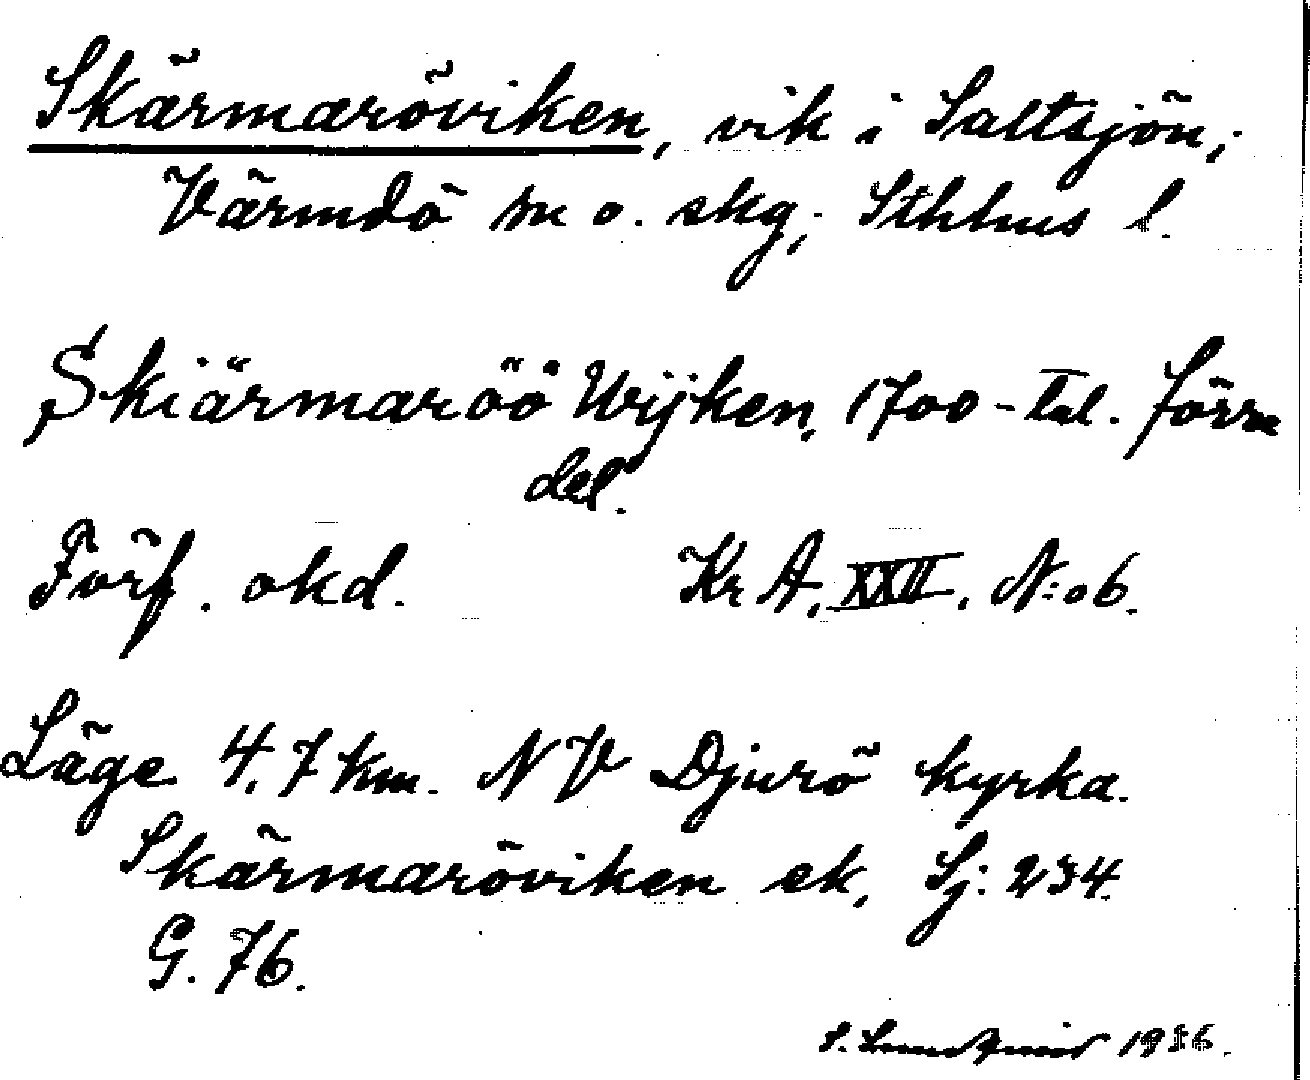 Skärmaröviken, vik i Saltsjön;
Värmdö sn o. skg; Sthlms l.
Skiärmaröö Wijken, 1700-tal. förra
del.
Förf. okd. Kr A, XXII, N:o 6.
Läge 4,7 km. NV Djurö kyrka.
Skärmaröviken ek. Sj: 234.
G. 76.
S. 1936.